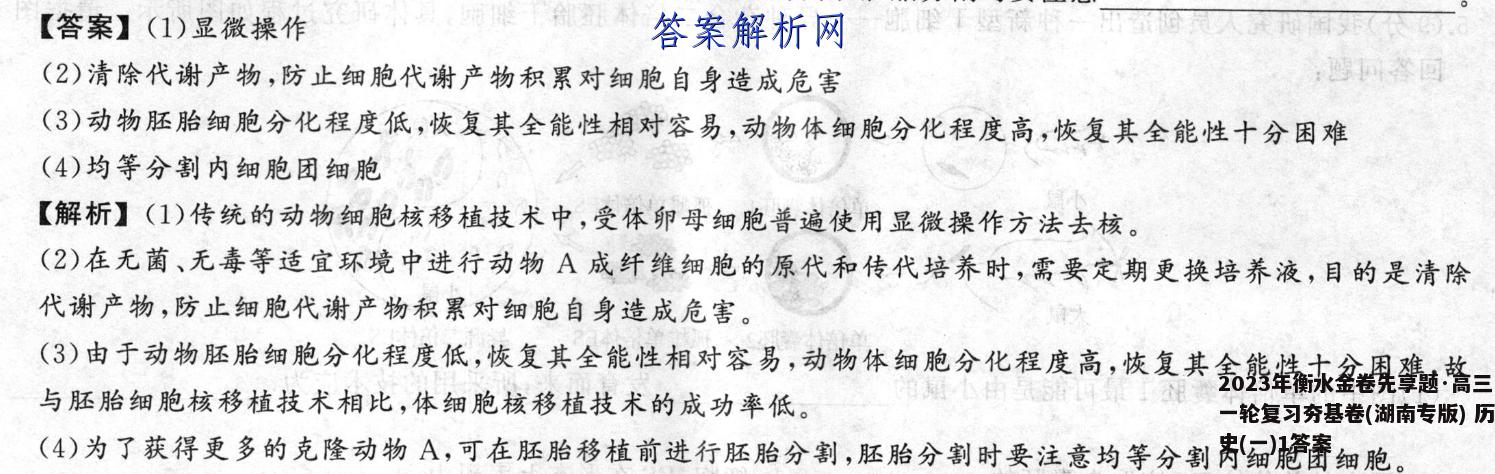 【答案】(1)显微操作
答案解析网
(2)清除代谢产物,防止细胞代谢产物积累对细胞自身造成危害
(3)动物胚胎细胞分化程度低,恢复其全能性相对容易,动物体细胞分化程度高,恢复其全能性十分困难
(4)均等分割内细胞团细胞
【解析】(1)传统的动物细胞核移植技术中,受体卵母细胞普遍使用显微操作方法去核。
(2)在无菌、无毒等适宜环境中进行动物 A 成纤维细胞的原代和传代培养时,需要定期更换培养液,目的是清除
代谢产物,防止细胞代谢产物积累对细胞自身造成危害。
(3)由于动物胚胎细胞分化程度低,恢复其全能性相对容易,动物体细胞分化程度高,恢复其全能性十分困难,故
与胚胎细胞核移植技术相比,体细胞核移植技术的成功率低。
(4)为了获得更多的克隆动物 A,可在胚胎移植前进行胚胎分割,胚胎分割时要注意均等分割内细胞团细胞。
2023年衡水金卷先享题·高三
一轮复习夯基卷(湖南专版) 历
史(一)1答案